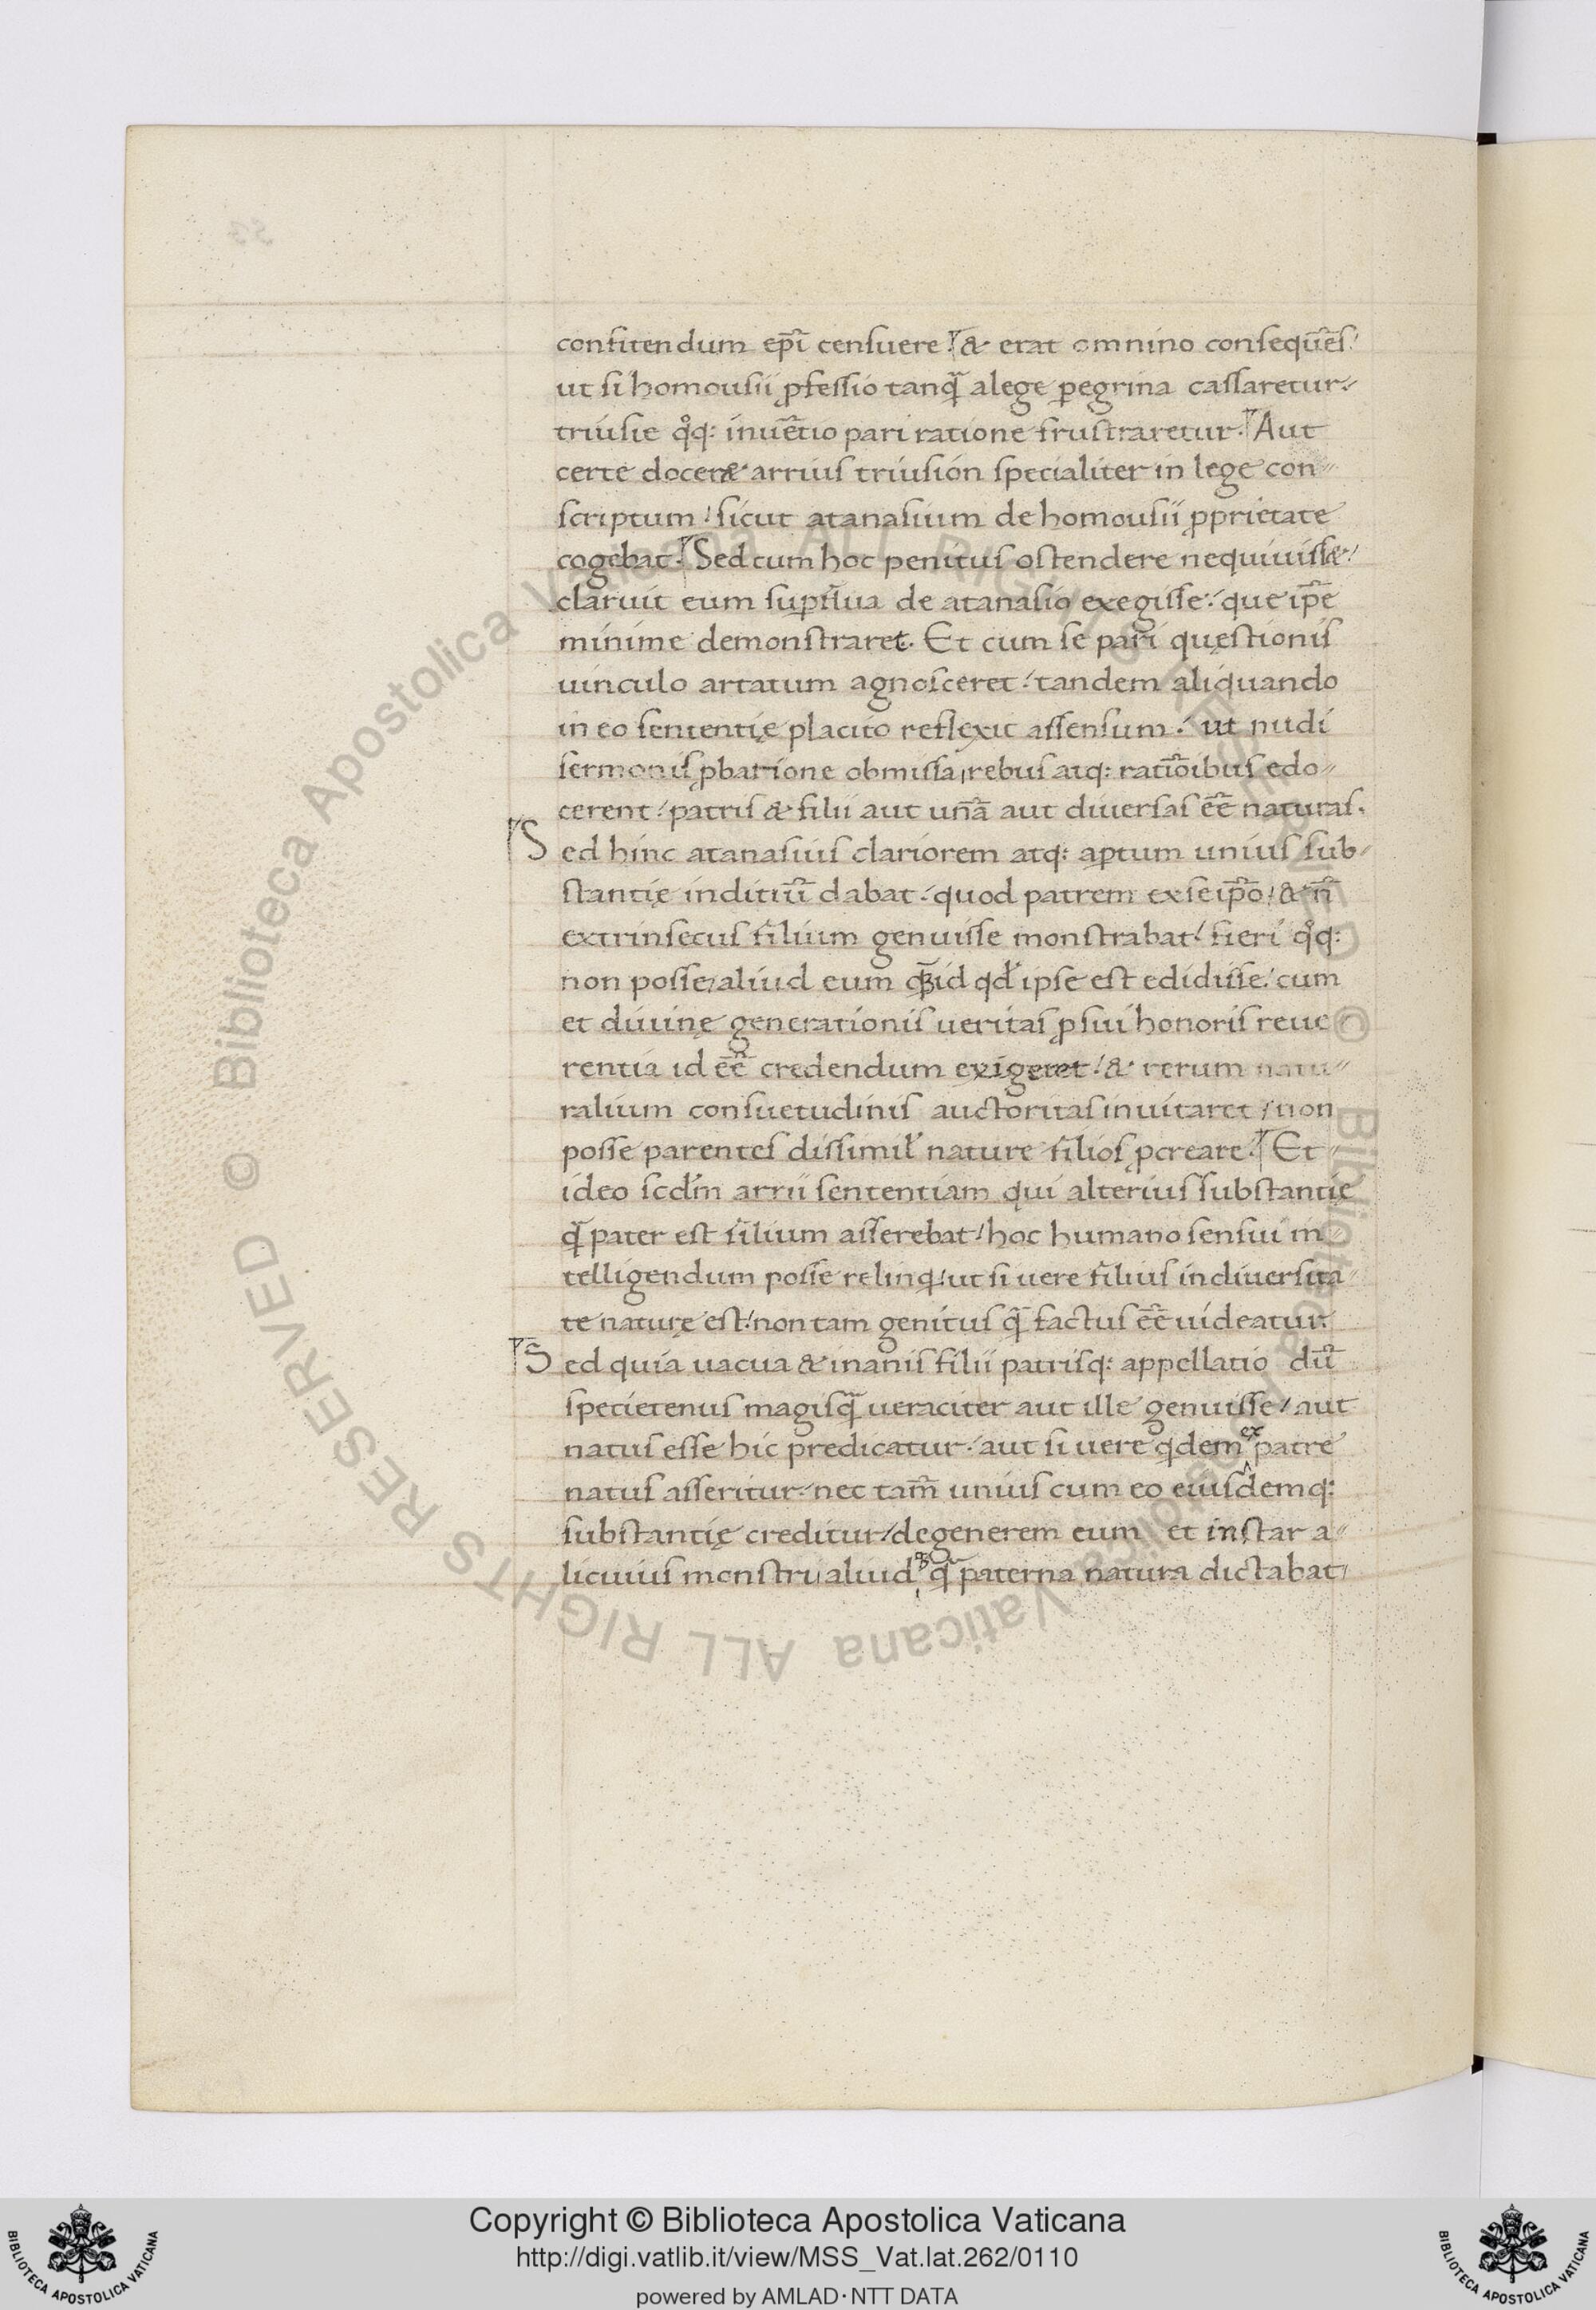 confitendum ep̄i censuere. & erat omnino consequēs.
ut si homousii ꝓfessio tanq̄ alege ꝑegrina cassaretur.
triusie qͦq: inuētio pari ratione frustraretur. Aut
certe docer& arrius triusion specialiter in lege con-
scriptum. sicut atanasium de homousii ꝓprietate
cogebat. Sed cum hoc penitus ostendere nequiuiss&.
claruit eum suꝑflua de atanasio exegisse. que ip̄e
minime demonstraret. Et cum se pari quęstionis
uinculo artatum agnosceret. tandem aliquando
in eo sententię placito reflexit assensum. ut nudi
sermonis ꝓbatione obmissa, rebus atq: ratiōibus edo-
cerent. patris & filii aut unā aut diuersas ēē naturas.
Sed hinc atanasius clariorem atq: aꝑtum unius sub-
stantię inditiū dabat. quod patrem ex se ip̄o. & n̄
extrinsecus filium genuisse monstrabat. fieri qͦq:
non posse, aliud eum q̄ id qd' ipse est edidisse. cum
et diuinę generationis ueritas ꝓ sui honoris reue-
rentia id ēē credendum exigeret. & rerum natu-
ralium consuetudinis auctoritas inuitaret. non
posse parentes dissimil' nature filios ꝓcreare. Et
ideo scd'm arrii sententiam qui alterius substantię
q̄ pater est filium asserebat. hoc humano sensui in-
telligendum posse relinq. ut si uere filius in diuersita-
te naturę est. non tam genitus q̄ factus ēē uideatur.
Sed quia uacua & inanis filii patrisq: appellatio dū
specietenus magisq̄ ueraciter aut ille genuisse. aut
natus esse hic predicatur. aut si uere qdem ex patre
natus asseritur. nec tam̄ unius cum eo eiusdemq:
substantię creditur. degenerem eum et instar a-
licuius monstri, aliud q̄ paterna natura dictabat,
Copyright © Biblioteca Apostolica Vaticana
http://digi.vatlib.it/view/MSS_Vat.lat.262/0110
powered by AMLAD·NTT DATA
BIBLIOTECA APOSTOLICA VATICANA
BIBLIOTECA APOSTOLICA VATICANA
© Biblioteca Apostolica Vaticana ALL RIGHTS RESERVED © Biblioteca Apostolica Vaticana ALL RIGHTS RESERVED